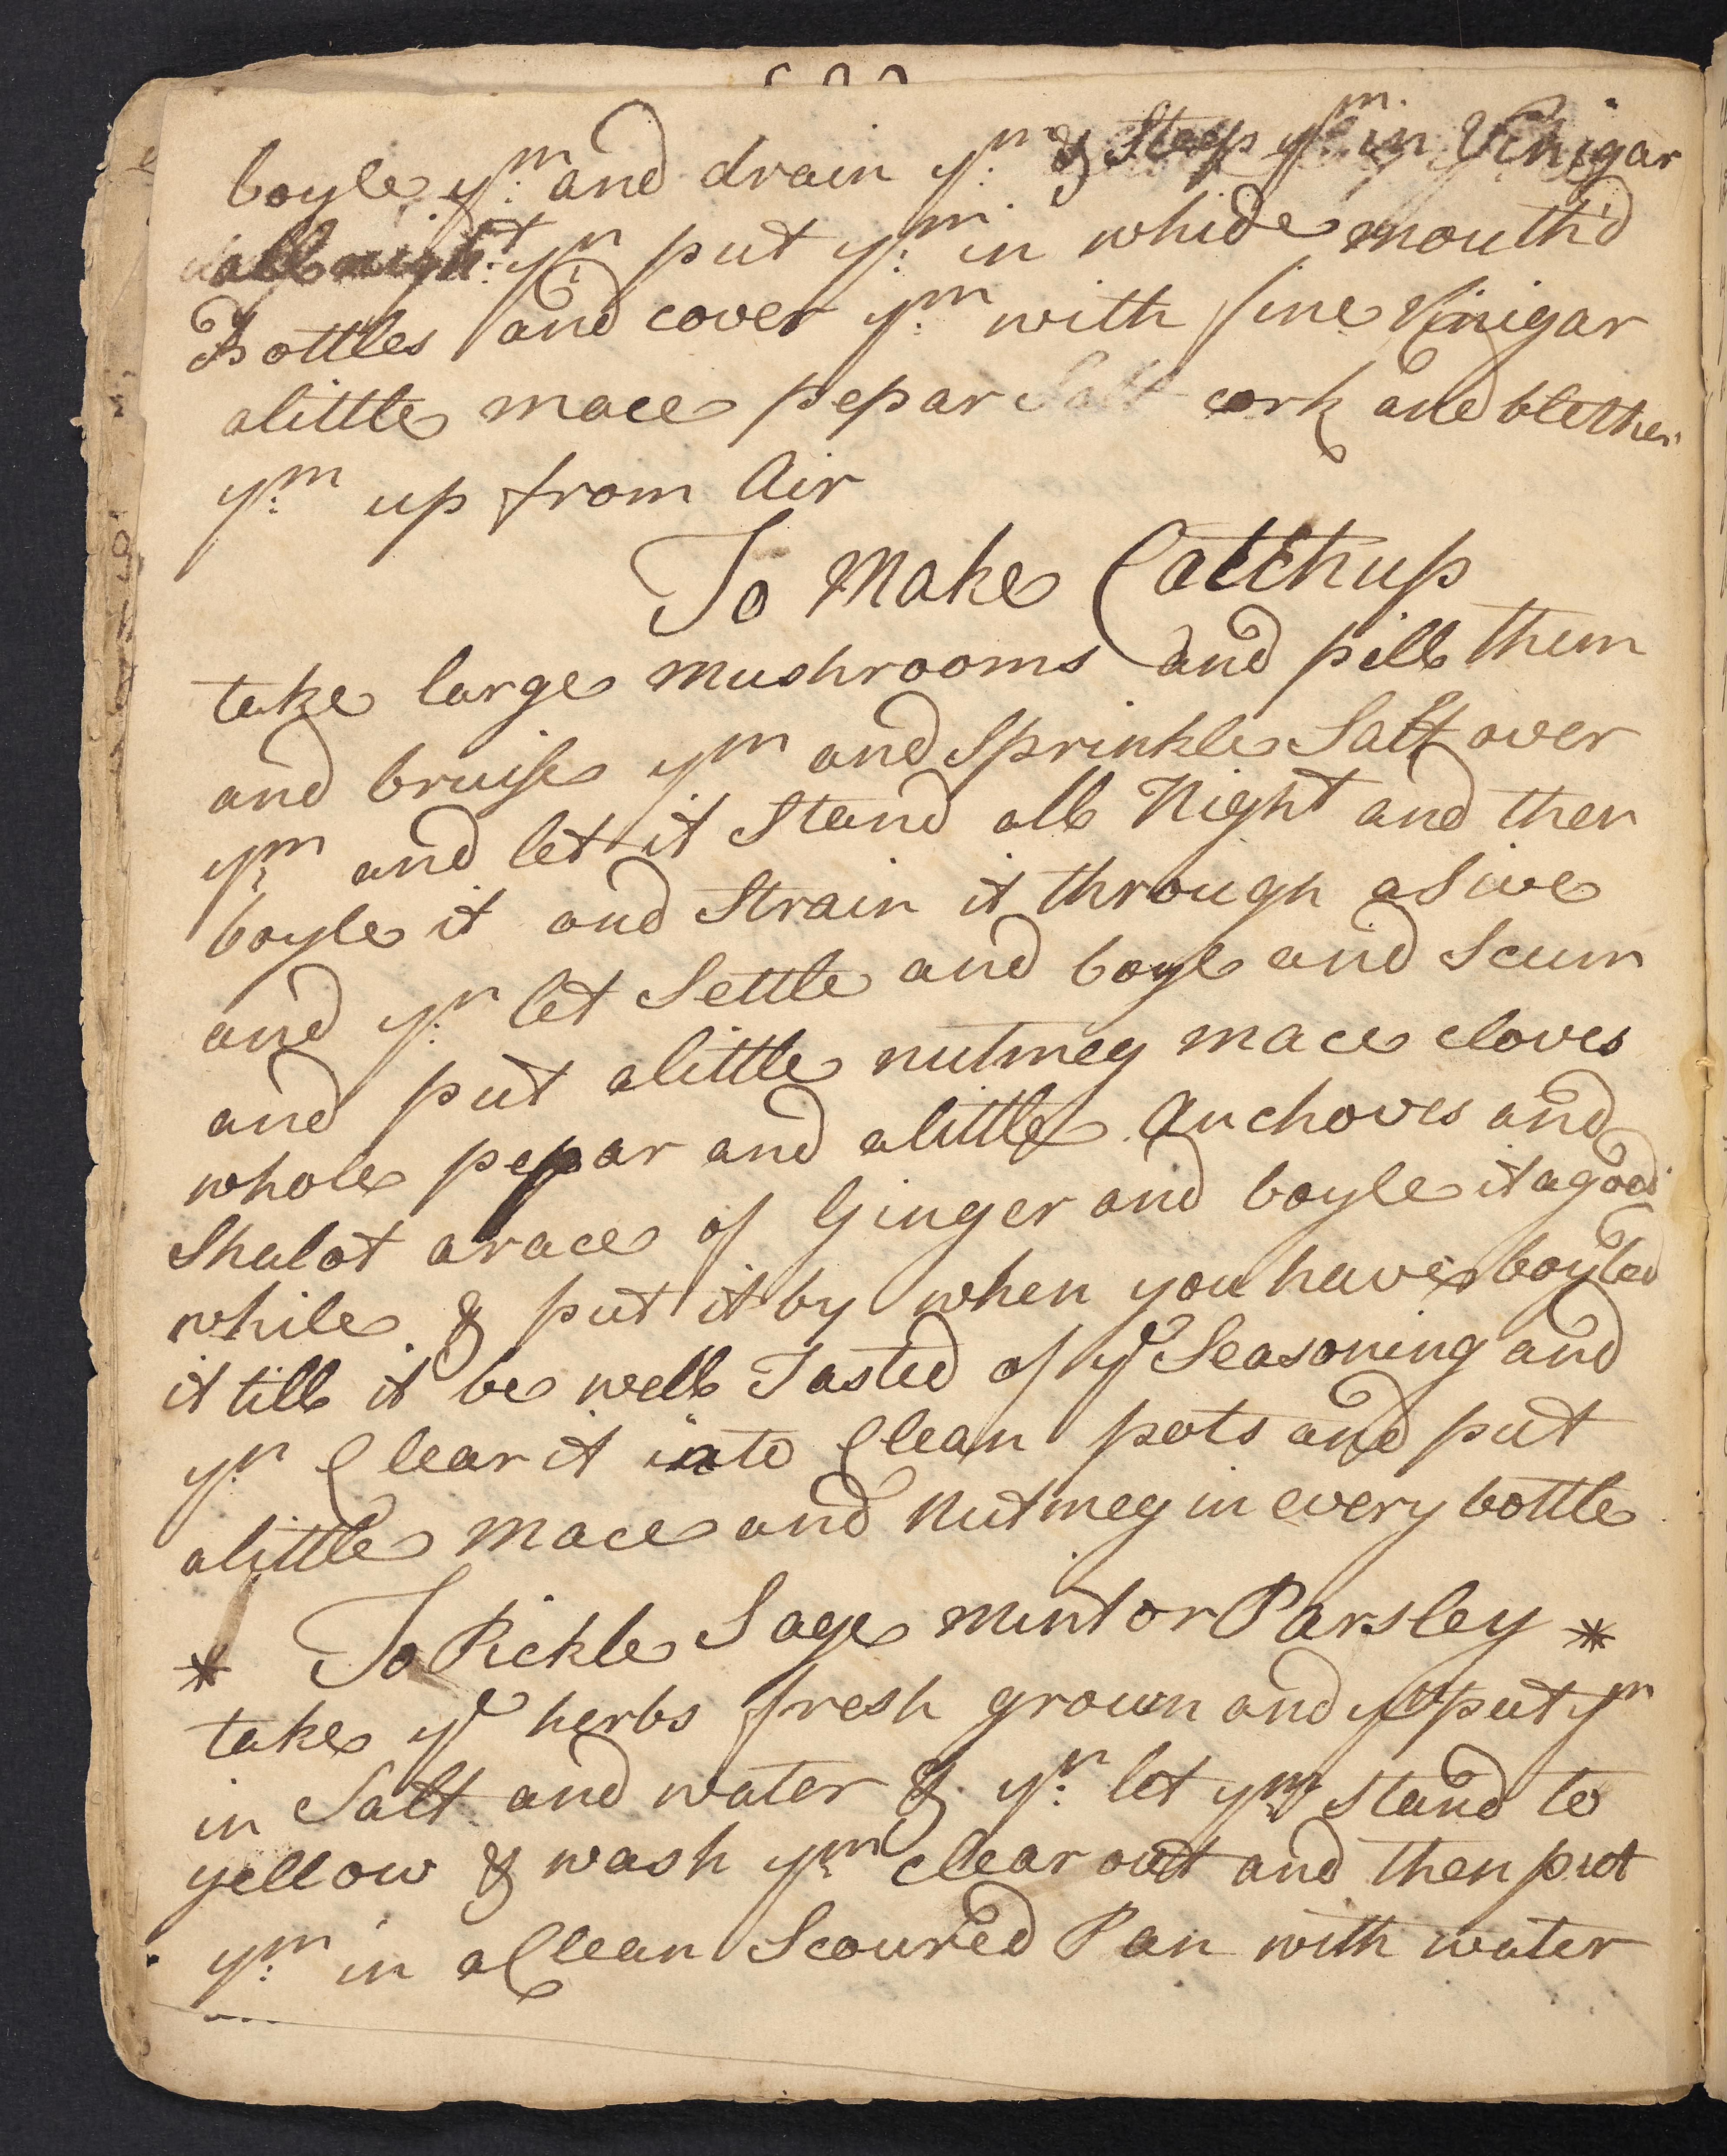 boyle ym and drain ym & Steep ym in Vinigar
all night yn put ym in whide mouth'd
Bottles and cover ym with fine Vinigar
alittle mace pepar Salt cork and blether
ym up from Air
To Make Cattchup
take large mushrooms and pill them
and bruise ym and Sprinkle Salt over
ym and let it Stand all Night and then
boyle it and Strain it through a Sive
and yn let Settle and boyle and Scum
and put alittle nutmeg mace cloves
whole pepar and alittle Anchoves and
Shalot arace of Ginger and boyle it agood
while & put it by when you have boyled
it till it be well Tasted of ye Seasoning and
yn Clear it into Clean pots and put
alittle mace and Nutmeg in every bottle
* To Pickle Sage mint or Parsley *
take ye herbs fresh grown and yn put ym
in Salt and water & yn let ym Stand to
yellow & wash ym clear out and then put
ym in a Clean Scoured Pan with water